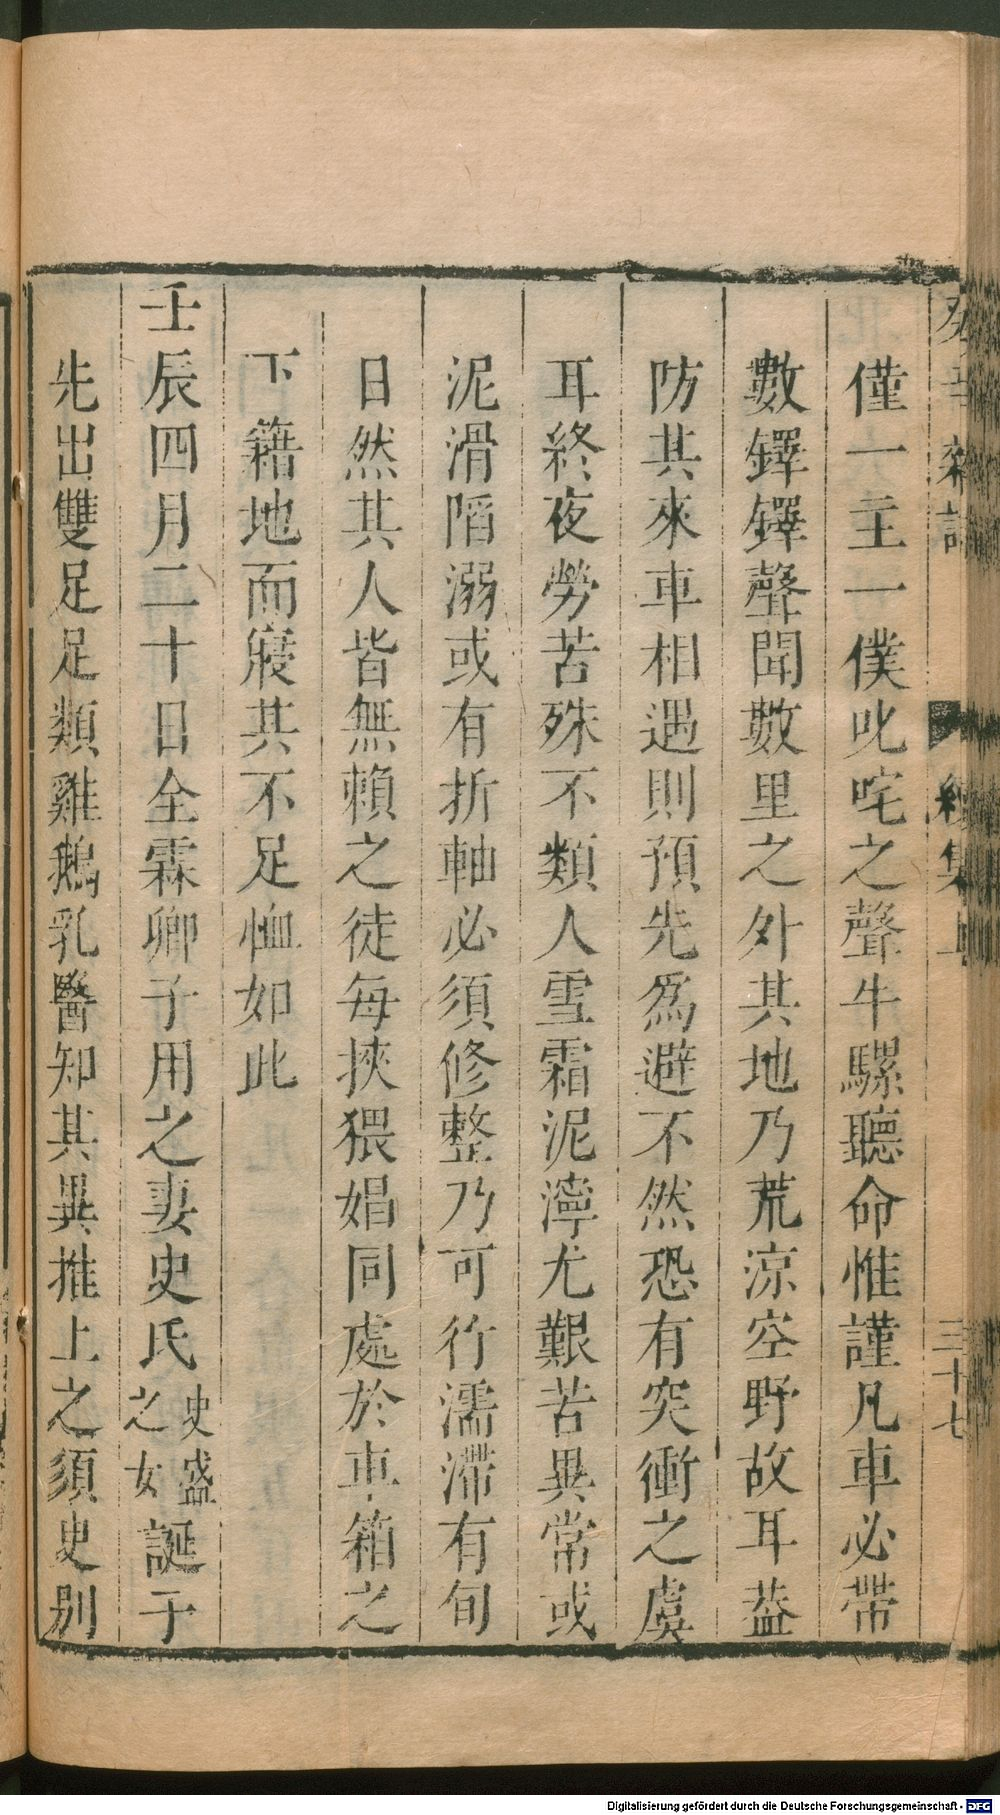 癸辛雜識 續集上 三十七
僅一主一僕叱咤之聲牛騾聽命惟謹凡車必帶
數鐸鐸聲聞數里之外其地乃荒涼空野故耳葢
防其來車相遇則預先爲避不然恐有突衝之虞
耳終夜勞苦殊不類人雪霜泥濘尤艱苦異常或
泥滑陷溺或有折軸必須修整乃可行濡滯有旬
日然其人皆無賴之徒每挾猥娼同處於車箱之
下籍地而寢其不足恤如此
壬辰四月二十日全霖卿子用之妻史氏史盛之女誕于
先出雙足足類雞鵝乳醫知其異推上之須臾別
Digitalisierung gefördert durch die Deutsche Forschungsgemeinschaft - DFG